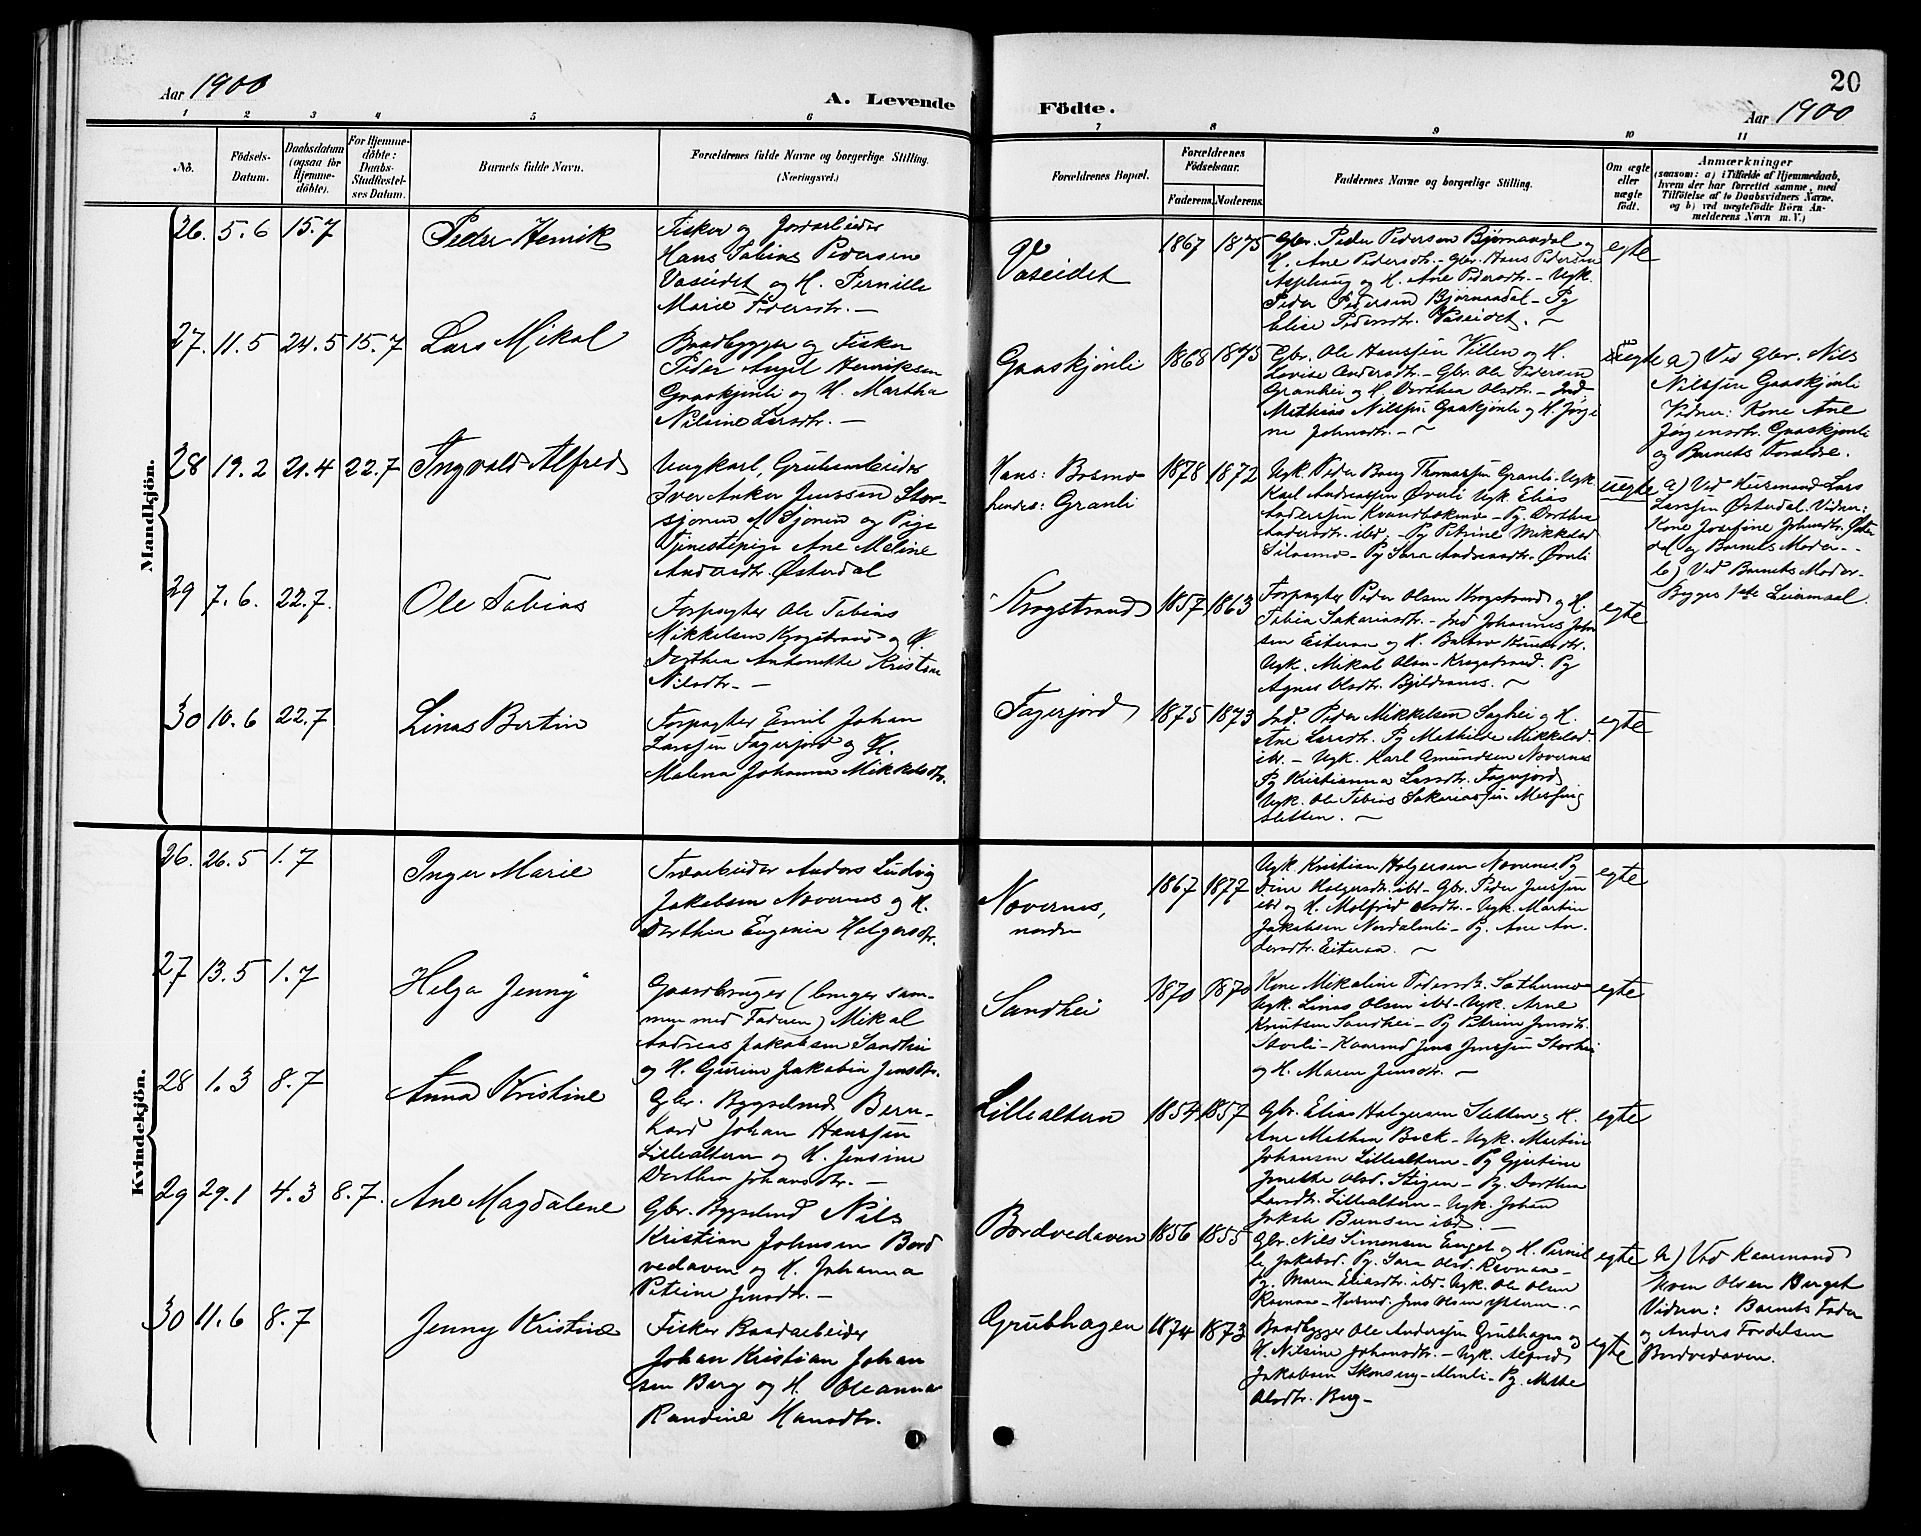 Aar 1900
A. Levende Födte.
20
Aar 1900
1 2 3 4 5 6 7 8 9 10 11
No.
Födsels-
Datum.
Daabsdatum
(ogsaa for
Hjemme-
döbte).
For Hjemme-
döbte:
Daabs-
Stadfæstel-
ses Datum.
Barnets fulde Navn.
Forældrenes fulde Navne og borgerlige Stilling.
(Næringsvei.)
Forældrenes Bopæl.
Forældrenes
Födselsaar.
Faderens. Moderens.
Faddernes Navne og borgerlige Stilling.
Om ægte
eller
uægte
födt.
Anmærkninger
(saasom: a) i Tilfælde af Hjemmedaab,
hvem der har forrettet samme, med
Tilföielse af to Daabsvidners Navne.
og b) ved uægtefödte Börn An-
melderens Navn m. V.)
Mandkjön.
26. 5.6 15.7
Peder Henrik
Fisker og Jordarbeider
Hans Tobias Pedersen
Vaseidet og H. Pernille
Marie Pedersdtr. —
Vaseidet
1867 1875
Gbr. Peder Pedersen Bjørnaadal og
H. Ane Pedersdtr. – Gbr. Hans Pedersen
Asphaug og H. Ane Pedersdtr. – Ugk.
Peder Pedersen Bjørnaadal – Pg
Elise Pedersdtr. Vaseidet. ~
egte
27. 11.5 24.5 15.7
Lars Mikal
Baadbygger og Fisker
Peder Angel Henriksen
Graaskjønli og H. Martha
Nilsine Larsdtr. —
Graaskjønli
1868 1875
Gbr. Ole Hanssen Villen og H.
Lovise Andersdtr. – Gbr. Ole Pedersen
Granhei og H. Dorthea Olsdtr. – Ind.
Mathias Nilssen Graaskjønli og H. Jørgi
ne Johnsdtr. – ~
egte
a) Ved Gbr. Nils
Nilssen Graaskjønli
Vidner: Kone Ane
Jørgensdtr. Graaskjønli
og Barnets Forældre.
28 19.2 21.4 22.7
Ingvald Alfred
Ungkarl, Grubearbeider
Iver Anker Jenssen Stor-
sjonen N. Sjonen og Pige
Tjenestepige Ane Meline
Andersdtr. Østerdal
Hans: Bosmo
hendes: Granli
1878 1872
Ugk. Peder Berg Thomassen Granli. Ugk.
Karl Andreassen Øvrli Ugk. Elias
Anderssen Kvandbækmo – Pg. Dorthea
Andersdtr. ibd. – Pg Petrine Mikkelsd
Silasmo – Pg Sara Andreasdtr. Øvrli
uegte
a) Ved Husmand Lars
Larssen Østerdal. Vidner:
Kone Josefine Johnsdtr. Øster
dal og Barnets Moder. –
b) Ved Barnets Moder –
29 7.6. 22.7.
Ole Tobias
Forpagter Ole Tobias
Mikkelsen Krogstrand og H.
Dorthea Antonette Kristine
Nilsdtr. —
Krogstrand
1857 1863
Forpagter Peder Olsen Krogstrand og H.
Tobia Sakariasdtr. – Ind Johannes John
sen Eiteraa og H. Barbro Knudsdtr.
Ugk. Mikal Olsen Krogstrand. Pg
Agnes Olsdtr. Bjeldaanes. ~
egte
30 10.6 22.7
Linas Bertin
Forpagter Emil Johan
Larssen Fagerjord og H.
Malena Johanna Mikkelsdtr.
Fagerjord
1875 1873
Ind. Peder Mikkelsen Saghei og H.
Ane Larsdtr. Pg Mathilde Mikkelsd.
ibd. – Ugk. Karl Amundsen Nævernes
Pg Kristianna Larsdtr. Fagerjord
Ugk. Ole Tobias Sakariassen Messing
sletten. ~
egte
Kvindekjön.
26. 26.5 1.7
Inger Marie
Træarbeider Anders Ludvig
Jakobsen Nævernes og H.
Dorthea Eugenia Holgersdtr.
Nævernes,
nordre
1867 1877
Ugk. Kristian Holgersen Nævernes. Pg
Dine Holgersdtr. ibd – Gbr. Peder Jenssen
ibd og H. Molfrid Olsdtr. – Ugk. Martin
Jakobsen Nordalenli – Pg. Ane An-
dersdtr. Eiteraa. ~
egte
27 13.5 1.7
Helga Jenny
Gaardbruger (bruger sam-
men med Faderen) Mikal
Andreas Jakobsen Sandhei
og H. Gurine Jakobia Jensdtr.
Sandhei
1870 1870
Kone Mikaline Pedersdtr. Sæthermo
Ugk. Linas Olsen ibd – Ugk. Arne
Knutsen Sandhei – Pg Petrine Jensdtr.
Storli – Kaarmd Jens Jenssen Storhei
og H. Maren Jensdtr. –
egte
28 1.3 8.7
Anna Kristine
Gbr. Bygselmd Bern-
hard Johan Hanssen
Lillealteren og H. Jensine
Dorthea Johansdtr. —
Lillealteren
1854 1857
Gbr. Elias Holgersen Sletten og H.
Ane Mathea Beck – Ugk. Martin
Johansen Lillealteren – Pg Gjertine
Jonette Olsd. Stigen – Pg. Dorthea
Larsdtr. Lillealteren – Ugk. Johan
Jakob Bensen ibd. –
egte
29 29.1 4.3 8.7.
Ane Magdalene
Gbr. Bygselmd Nils
Kristian Johnsen Bord
vedaven og H. Johanna
Petrine Jensdtr. —
Bordvedaven
1856 1855
Gbr. Nils Simonsen Enget og H. Pernil
le Jakobsd. Pg. Sara Olsd. Revmoen –
Pg. Maren Eliasdtr. ibd – Ugk. Ole Olsen
egte
a) Ved Kaarmand
Sven Olsen Berget
Vidner: Barnets Fader
og Anders Fordelsen
Bordvedaven.
30 11.6 8.7
Jenny Kristine
Fisker Baadarbeider
Johan Kristian Johan
sen Berg og H. Oleanna
Randine Hansdtr.
Grubhagen
1874 1873
Baadbygger Ole Anderssen Grubhagen og
H. Nilsine Johansdtr. – Ugk. Alfred
Jakobsen Skonseng – Almli – Pg. Mette
Olsdtr. Berg –
egte